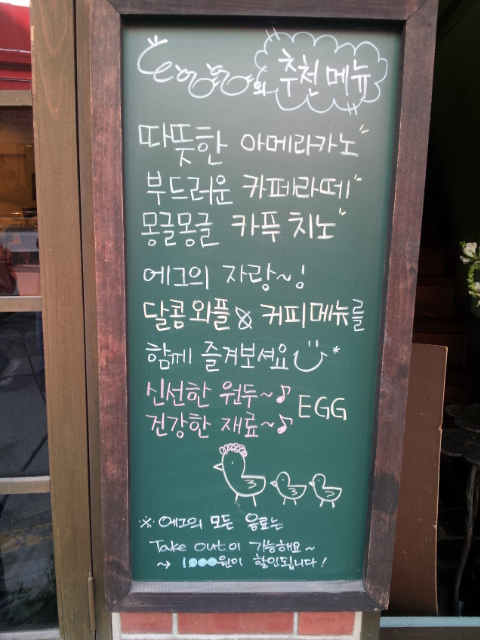 egg의 추천메뉴
따뜻한 아메리카노"
부드러운 카페라떼"
몽글몽글 카푸치노"
에그의 자랑~!
달콤와플 & 커피메뉴를
함께 즐겨보셔요
신선한 원두~♪
건강한 재료~♪ EGG
※ 에그의 모든 음료는
Take out이 가능해요~
→ 1000원이 할인됩니다!